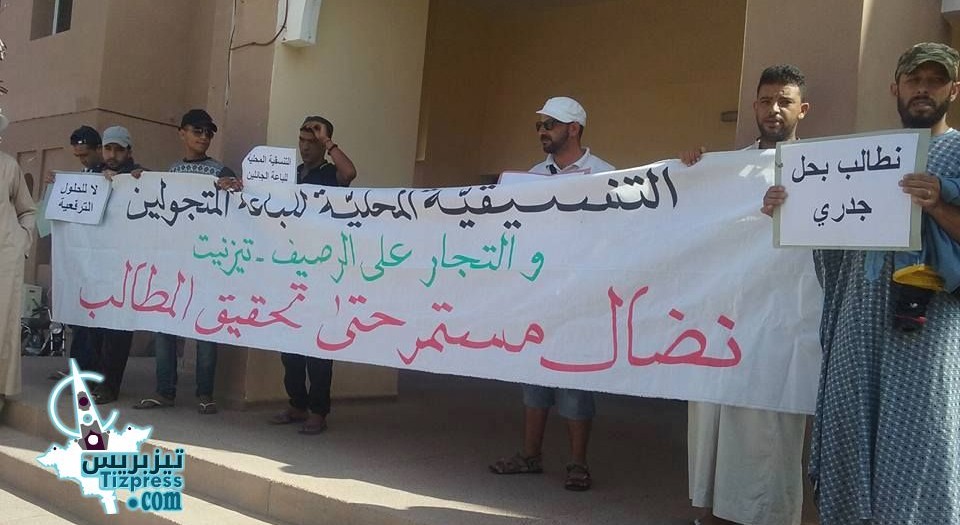 التنسيقية المحلية للباعة المتجولين
و التجار على الرصيف - تيزنيت
نضال مستمر حتى تحقيق المطالب
نطالب بحل
جدري
التنسقية المحلية
للباعة الجائلين
لا للحلول
الترقعية
تيزبريس
Tizpress
.com